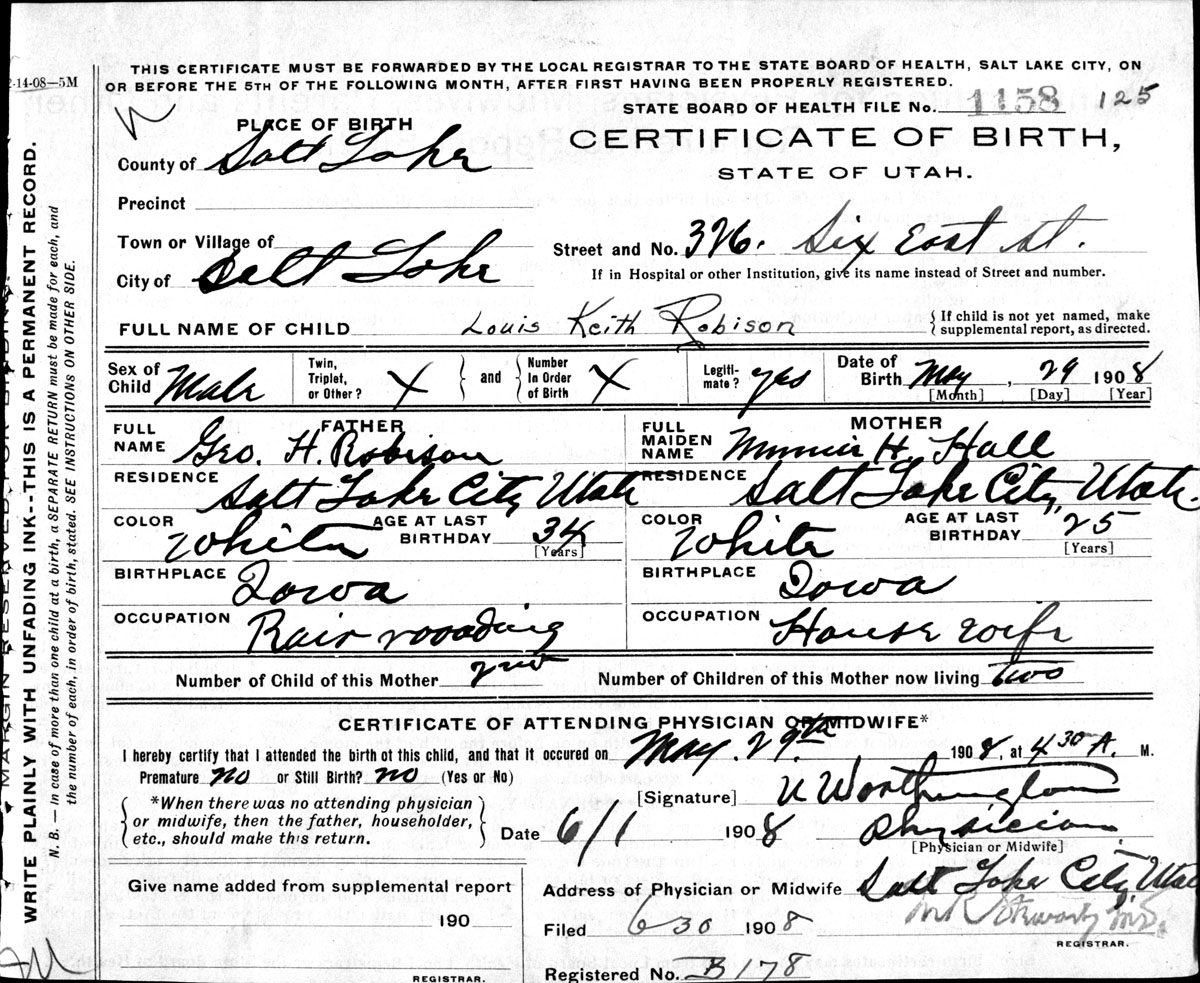 2-14-08—5M
THIS CERTIFICATE MUST BE FORWARDED BY THE LOCAL REGISTRAR TO THE STATE BOARD OF HEALTH, SALT LAKE CITY, ON
OR BEFORE THE 5TH OF THE FOLLOWING MONTH, AFTER FIRST HAVING BEEN PROPERLY REGISTERED.
STATE BOARD OF HEALTH FILE No. 1158 125
PLACE OF BIRTH
CERTIFICATE OF BIRTH,
STATE OF UTAH.
County of Salt Lake
Precinct
Town or Village of
Street and No. 326. Six East St.
City of Salt Lake
If in Hospital or other Institution, give its name instead of Street and number.
FULL NAME OF CHILD Louis Keith Robison { If child is not yet named, make supplemental report, as directed.
Sex of Child Male
Twin, Triplet, or Other? X { and } Number In Order of Birth X
Legiti- mate? yes
Date of Birth May, 29 1908
[Month] [Day] [Year]
FATHER
FULL NAME Geo. H. Robison
MOTHER
FULL MAIDEN NAME Minnie H. Hall
RESIDENCE Salt Lake City Utah
RESIDENCE Salt Lake City, Utah
COLOR White AGE AT LAST BIRTHDAY 34 [Years]
COLOR White AGE AT LAST BIRTHDAY 25 [Years]
BIRTHPLACE Iowa
BIRTHPLACE Iowa
OCCUPATION Rail roading
OCCUPATION House wife
Number of Child of this Mother 2nd
Number of Children of this Mother now living Two
CERTIFICATE OF ATTENDING PHYSICIAN OR MIDWIFE*
I hereby certify that I attended the birth of this child, and that it occured on May. 29th 1908, at 4 30 A. M.
Premature no or Still Birth? no (Yes or No)
{ *When there was no attending physician
or midwife, then the father, householder,
etc., should make this return. }
[Signature] U Worthington
Date 6/1 1908 Physician
[Physician or Midwife]
Give name added from supplemental report
190
REGISTRAR.
Address of Physician or Midwife Salt Lake City, Utah
Filed 6 30 1908
REGISTRAR.
Registered No. B178
MARGIN RESERVED FOR BINDING.
WRITE PLAINLY WITH UNFADING INK--THIS IS A PERMANENT RECORD.
N. B. — In case of more than one child at a birth, a SEPARATE RETURN must be made for each, and
the number of each, in order of birth, stated. SEE INSTRUCTIONS ON OTHER SIDE.